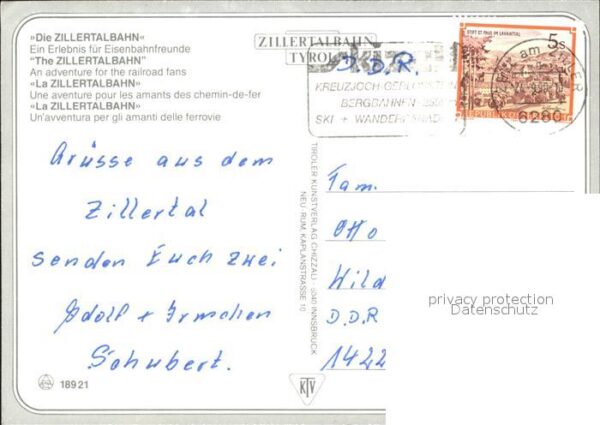 »Die ZILLERTALBAHN«
Ein Erlebnis für Eisenbahnfreunde
"The ZILLERTALBAHN"
An adventure for the railroad fans
»La ZILLERTALBAHN»
Une aventure pour les amants des chemin-de-fer
»La ZILLERTALBAHN»
Un'avventura per gli amanti delle ferrovie
ZILLERTALBAHN
TYROL
D. D.R.
KREUZJOCH-GERLOSSTEIN
BERGBAHNEN
SKI + WANDER
STIFT ST. PAUL IM LAVANTTAL
5s
REPUBLIK
am ZILLER
6280
Grüsse aus dem
Zillertal
senden Euch zwei
Adolf + Irmchen
Schubert.
TIROLER KUNSTVERLAG CHIZZALI · 6040 INNSBRUCK
NEU-RUM, KAPLANSTRASSE 10
Fam.
Otto
Wild
D.D.R
1422
privacy protection
Datenschutz
189 21
KTV